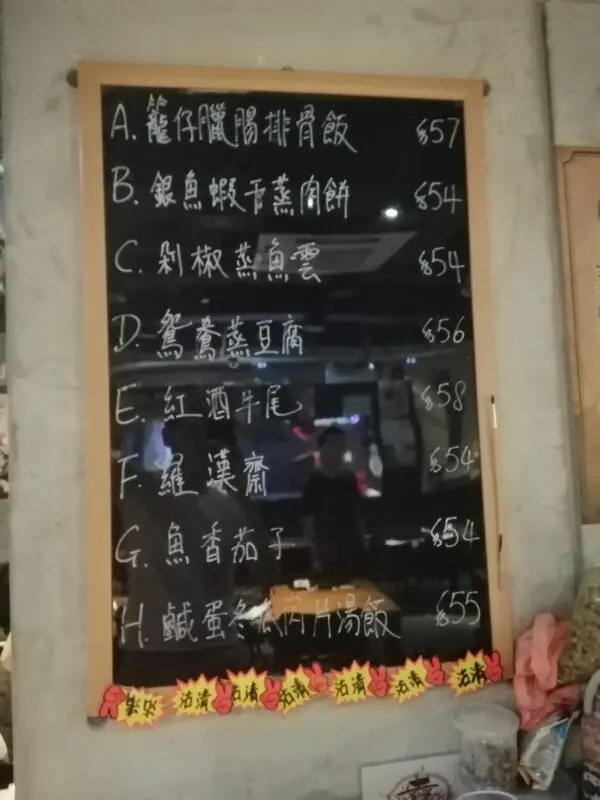 A. 籠仔臘腸排骨飯 $57
B. 銀魚蝦干蒸肉餅 $54
C. 剁椒蒸魚雲 $54
D. 鴛鴦蒸豆腐 $56
E. 紅酒牛尾 $58
F. 羅漢齋 $54
G. 魚香茄子 $54
H. 鹹蛋冬瓜肉片湯飯 $55
沽清 沽清 沽清 沽清 沽清 沽清